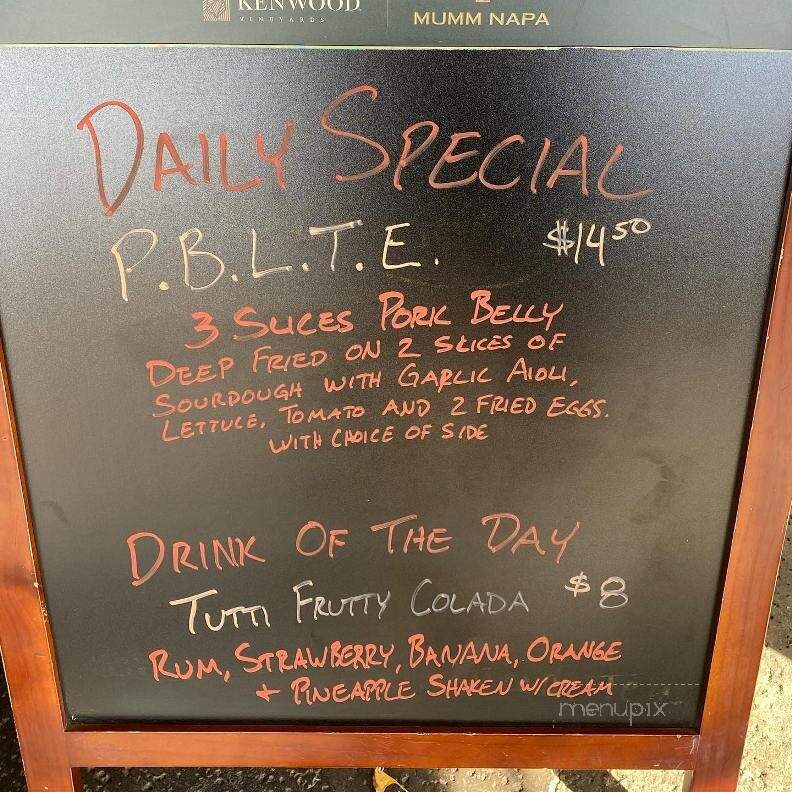 KENWOOD
VINEYARDS
MUMM NAPA
DAILY SPECIAL
P.B.L.T.E. $14 50
3 SLICES PORK BELLY
DEEP FRIED ON 2 SLICES OF
SOURDOUGH WITH GARLIC AIOLI,
LETTUCE, TOMATO AND 2 FRIED EGGS.
WITH CHOICE OF SIDE
DRINK OF THE DAY
TUTTI FRUTTY COLADA $8
RUM, STRAWBERRY, BANANA, ORANGE
+ PINEAPPLE SHAKEN W/ CREAM
menupix